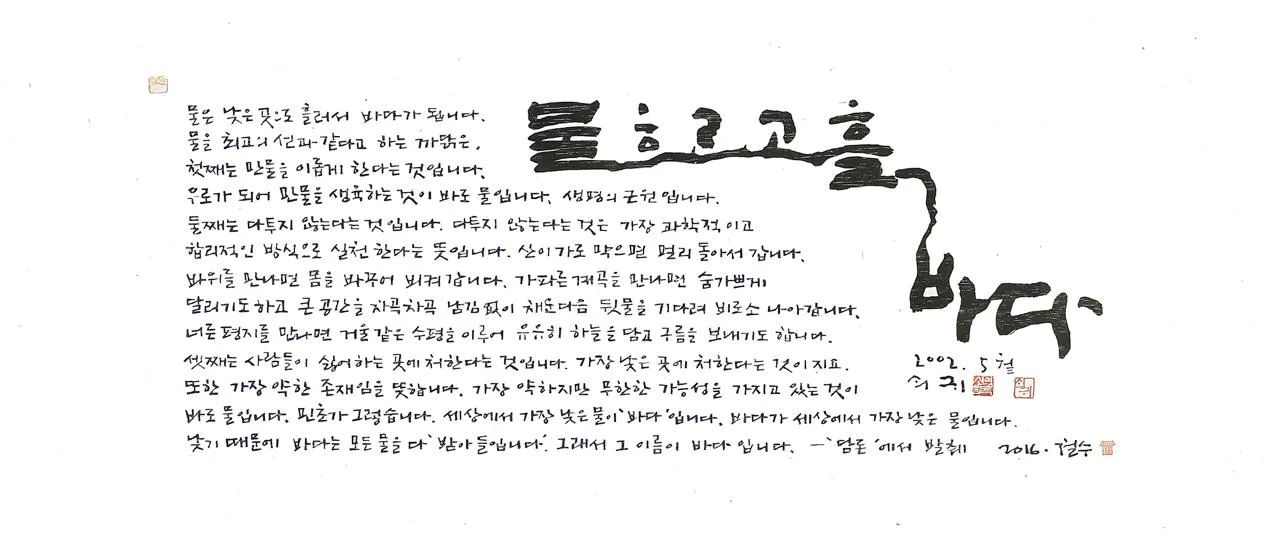 물은 낮은 곳으로 흘러서 바다가 됩니다.
물을 최고의 선과 같다고 하는 까닭은,
첫째는 만물을 이롭게 한다는 것입니다.
우로가 되어 만물을 생육하는 것이 바로 물입니다. 생명의 근원입니다.
둘째는 다투지 않는다는 것입니다. 다투지 않는다는 것은 가장 과학적이고
합리적인 방식으로 실천한다는 뜻입니다. 산이 가로 막으면 멀리 돌아서 갑니다.
바위를 만나면 몸을 바꾸어 비켜 갑니다. 가파른 계곡을 만나면 숨가쁘게
달리기도 하고 큰 공간을 차곡차곡 남김 없이 채운 다음 뒷물을 기다려 비로소 나아갑니다.
너른 평지를 만나면 거울 같은 수평을 이루어 유유히 하늘을 담고 구름을 보내기도 합니다.
셋째는 사람들이 싫어하는 곳에 처한다는 것입니다. 가장 낮은 곳에 처한다는 것이지요.
또한 가장 약한 존재임을 뜻합니다. 가장 약하지만 무한한 가능성을 가지고 있는 것이
바로 물입니다. 민초가 그렇습니다. 세상에서 가장 낮은 물이 '바다'입니다. 바다가 세상에서 가장 낮은 물입니다.
낮기 때문에 바다는 모든 물을 다 '받아들입니다'. 그래서 그 이름이 바다 입니다. - '담론'에서 발췌
2016. 철수
물 흐르고 흘
바다
2002. 5월
쇠귀